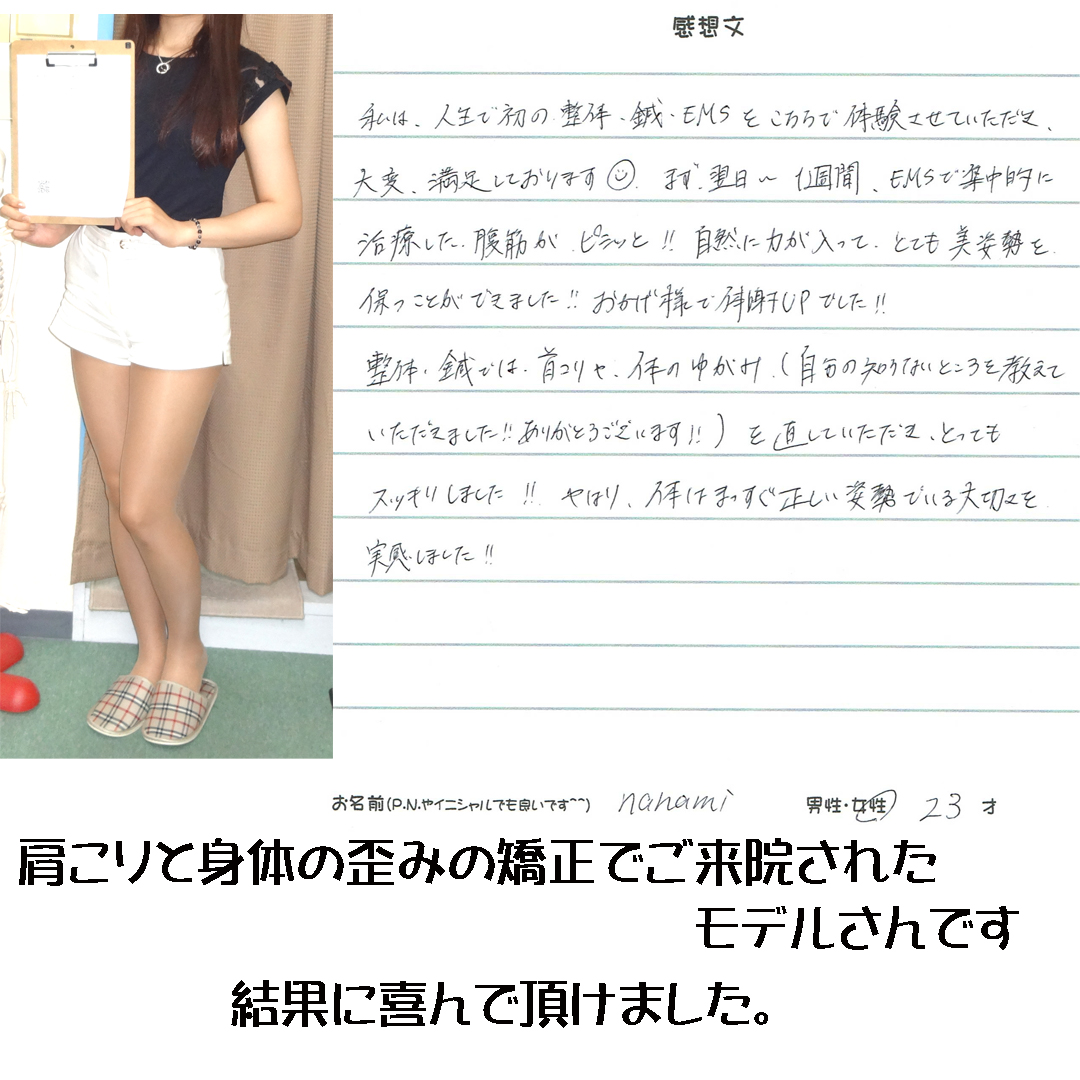 感想文
私は、人生で初の整体・鍼・EMSをこちらで体験させていただき、
大変、満足しております☺. まず、翌日〜1週間、EMSで集中的に
治療した腹筋がピシッと!! 自然に力が入って、とても美姿勢を
保つことができました!! おかげ様で体幹UPでした!!
整体・鍼では、首コリや、体のゆがみ、(自分の知らないところを教えて
いただきました!! ありがとうございます!!)を直していただき、とっても
スッキリしました!! やはり、体はまっすぐ正しい姿勢でいる大切さを
実感しました!!
お名前(P.N.やイニシャルでも良いです^^) nanami 男性・女性 23 才
肩こりと身体の歪みの矯正でご来院された
モデルさんです
結果に喜んで頂けました。